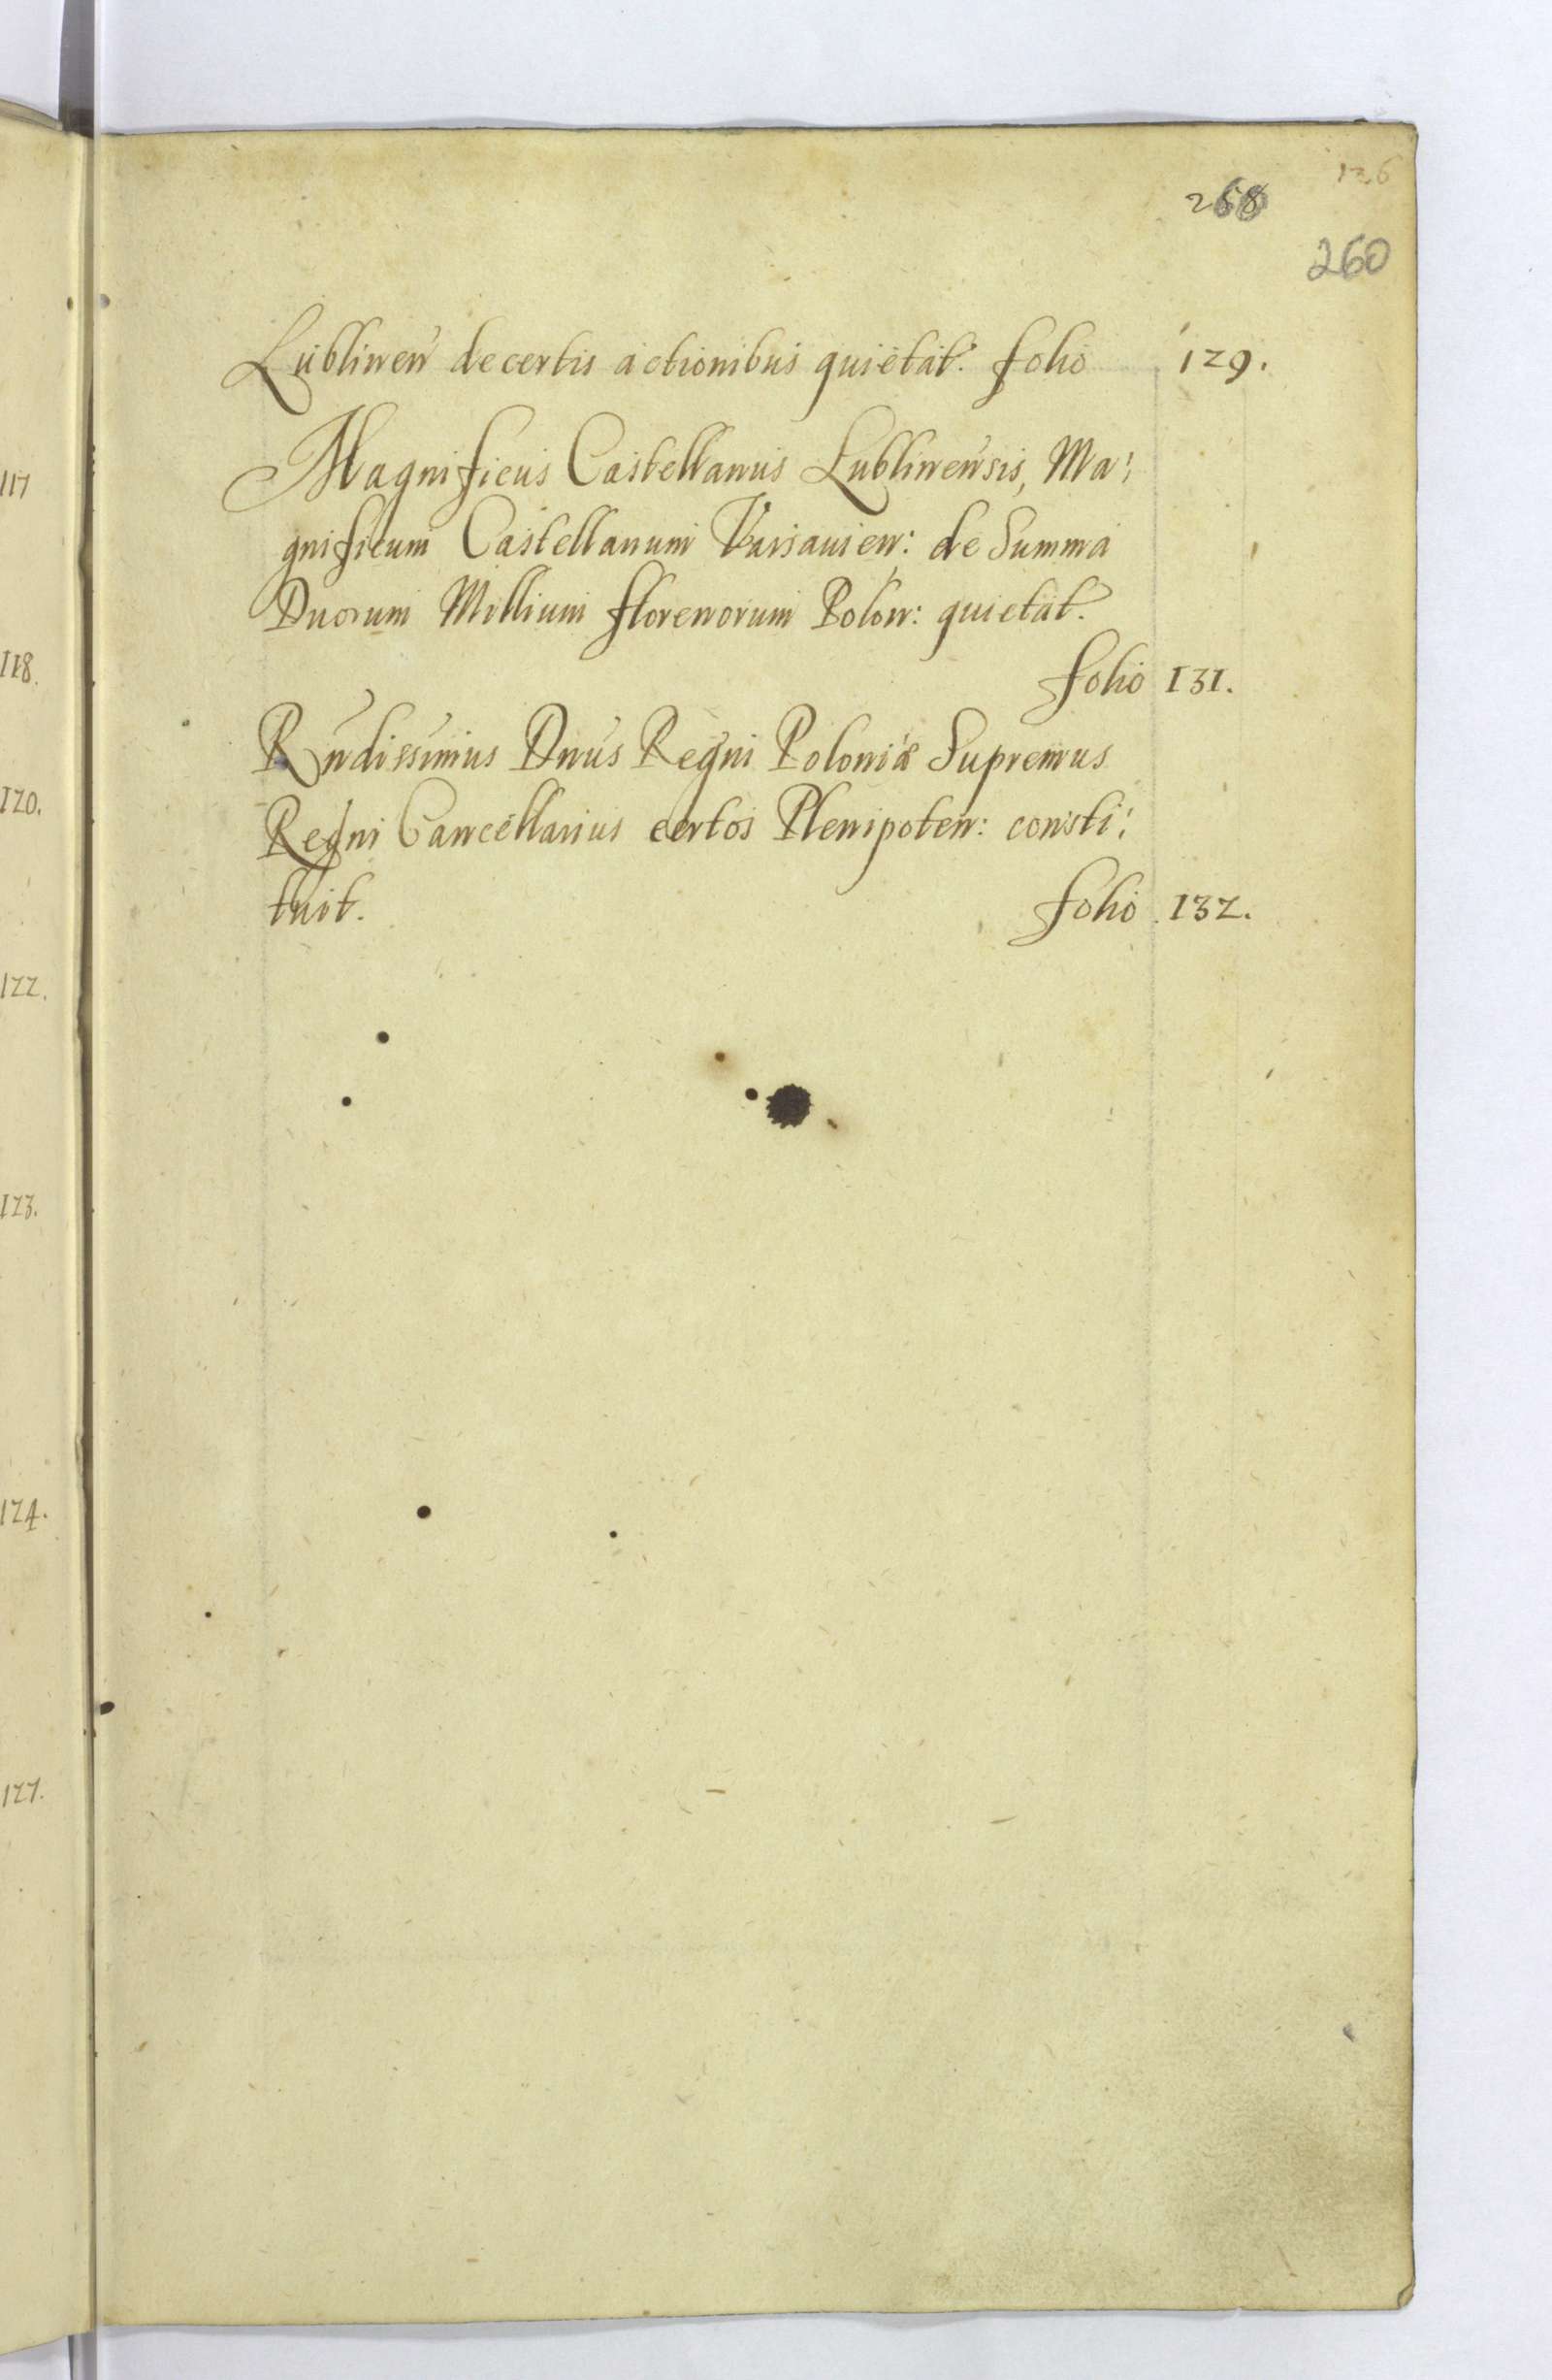 126
258
260
Lublinen de certis actionibus quietat. folio 129.
Magnificus Castellanus Lublinensis, Ma:
gnificum Castellanum Varsavien: de Summa
Duorum Millium florenorum Polon: quietat.
folio 131.
Rndissimus Dnus Regni Poloniæ Supremus
Regni Cancellarius certos Plenipoten: consti:
tuit. folio 132.
117
118.
120.
122.
123.
124.
127.